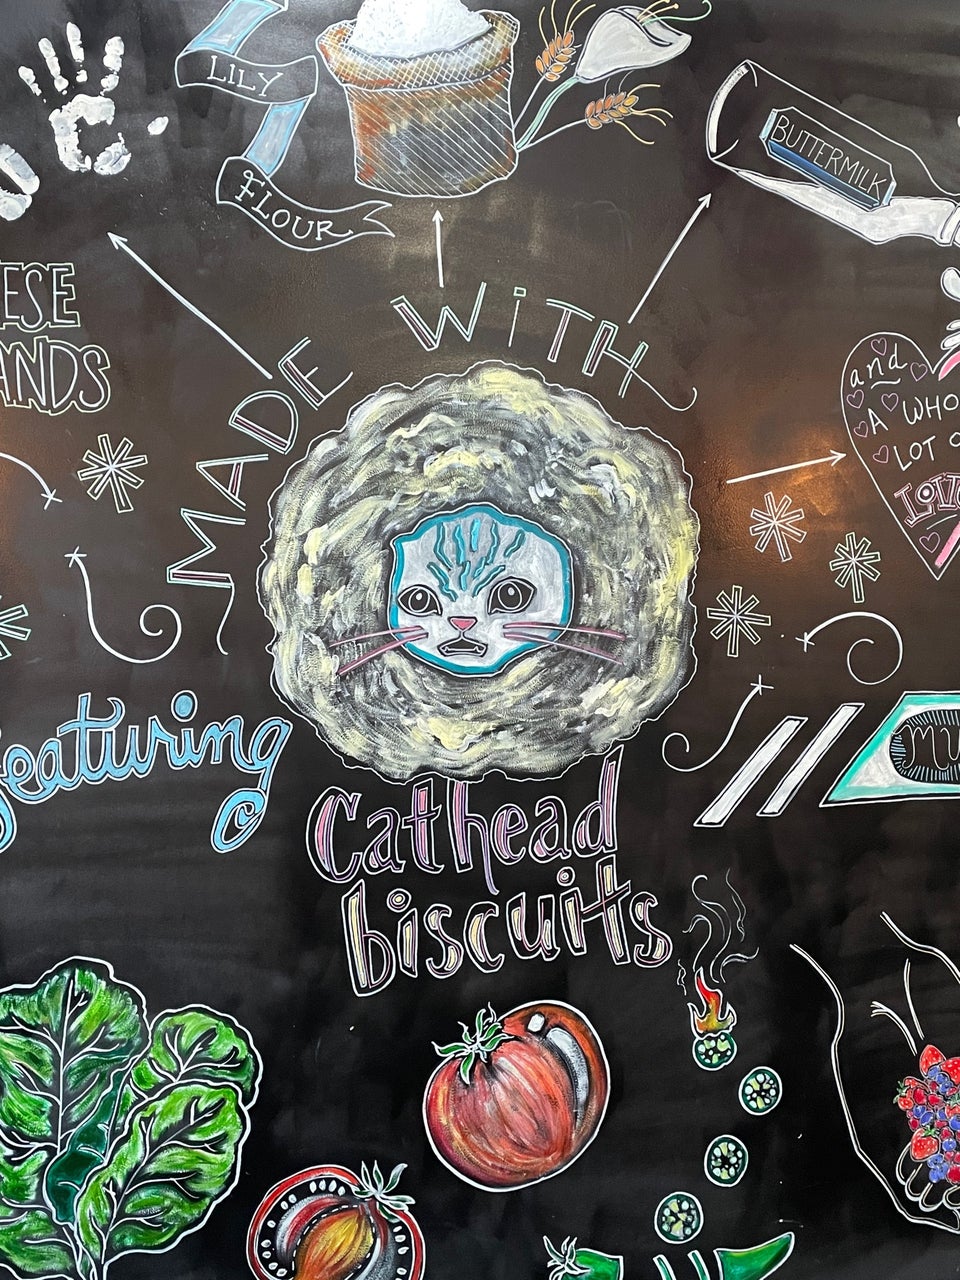 LILY
FLOUR
BUTTERMILK
ESE
ANDS
MADE WITH
and
A WHO
LOT O
featuring
MU
Cathead
biscuits